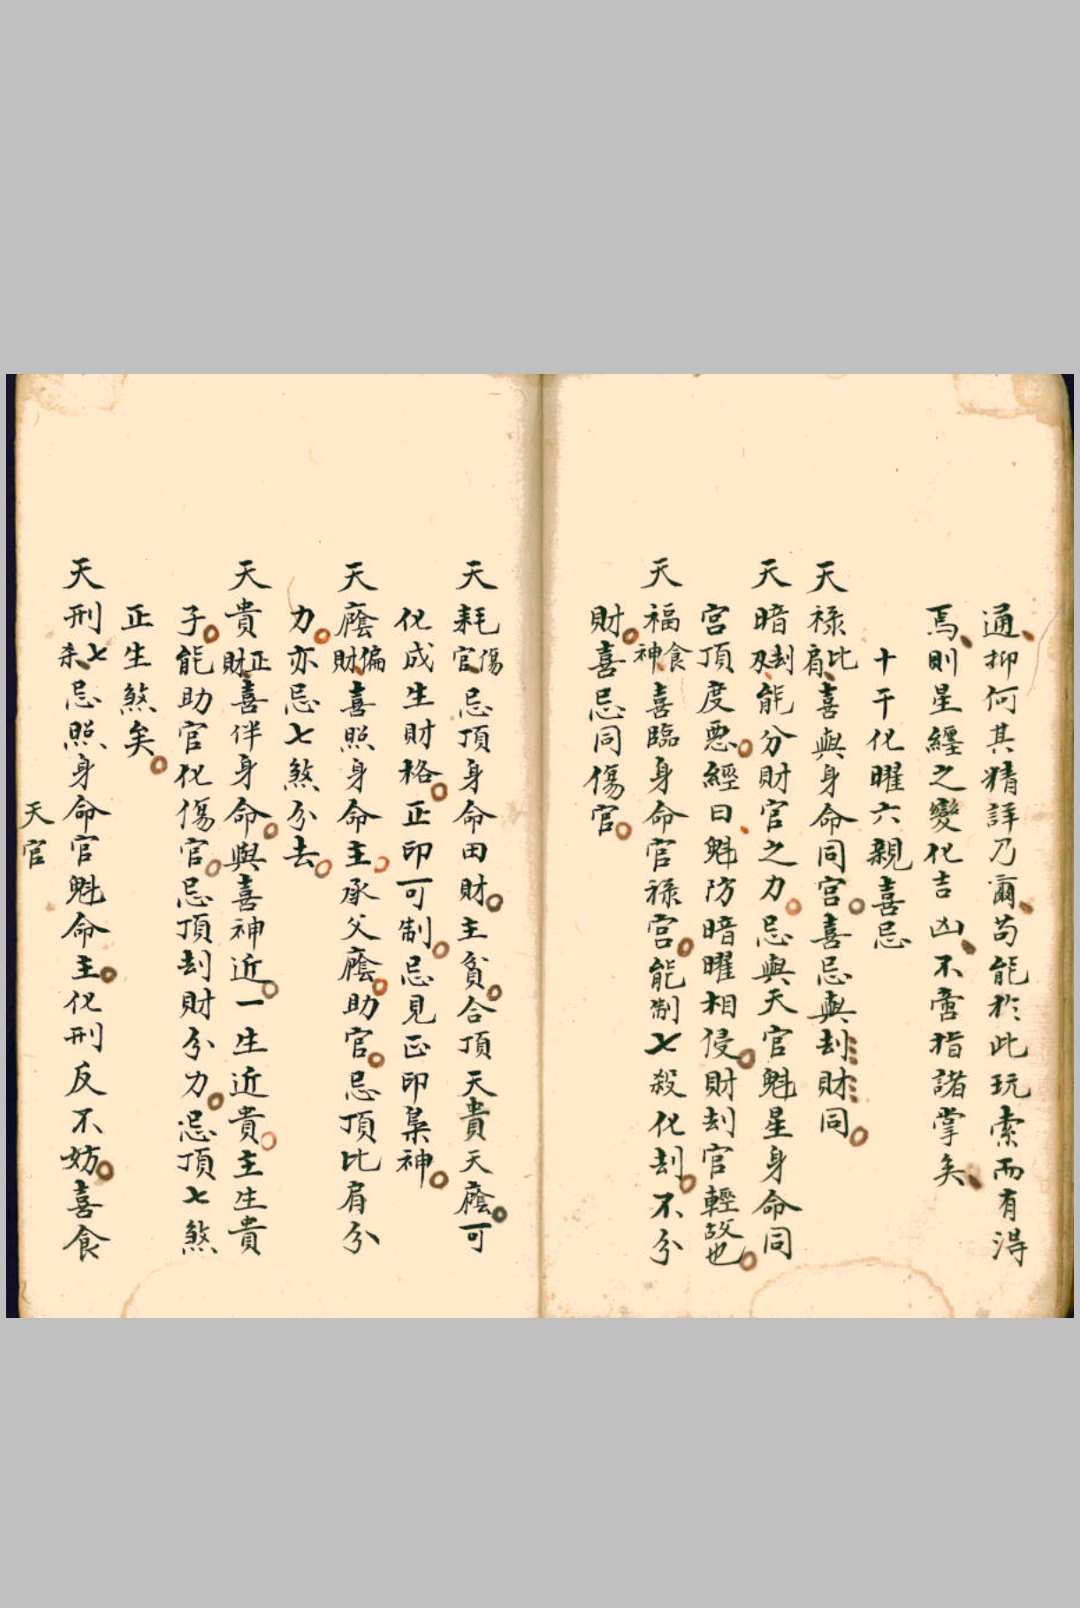 通抑何其猜詳乃爾苟能於此玩索而有得
焉則星纏之變化吉凶不啻指諸掌矣
十干化曜六親喜忌
天祿比肩喜與身命同宮喜忌與刦財同
天暗刦刄能分財官之力忌與天官魁星身命同
宮頂度惡經曰魁防暗曜相侵財刦官輕故也
天福食神喜臨身命官祿宮能制七殺化刦不分
財喜忌同傷官
天耗傷官忌頂身命田財主貧合頂天貴天廕可
化成生財格正印可制忌見正印梟神
天廕偏財喜照身命主承父廕助官忌頂比肩分
力亦忌七煞分去
天貴正財喜伴身命與喜神近一生近貴主生貴
子能助官化傷官忌頂刦財分力忌頂七煞
正生煞矣
天刑七杀忌照身命官魁命主化刑反不妨喜食
天官